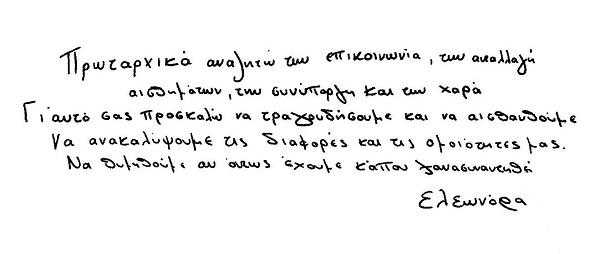 Πρωταρχικά αναζητώ την επικοινωνία, την ανταλλαγή
αισθημάτων, την συνύπαρξη και την χαρά
Γι'αυτό σας προσκαλώ να τραγουδήσουμε και να αισθανθούμε
Να ανακαλύψουμε τις διαφορές και τις ομοιότητες μας.
Να θυμηθούμε αν όπως έχουμε κάπου ξανασυναντηθεί
Ελεωνόρα